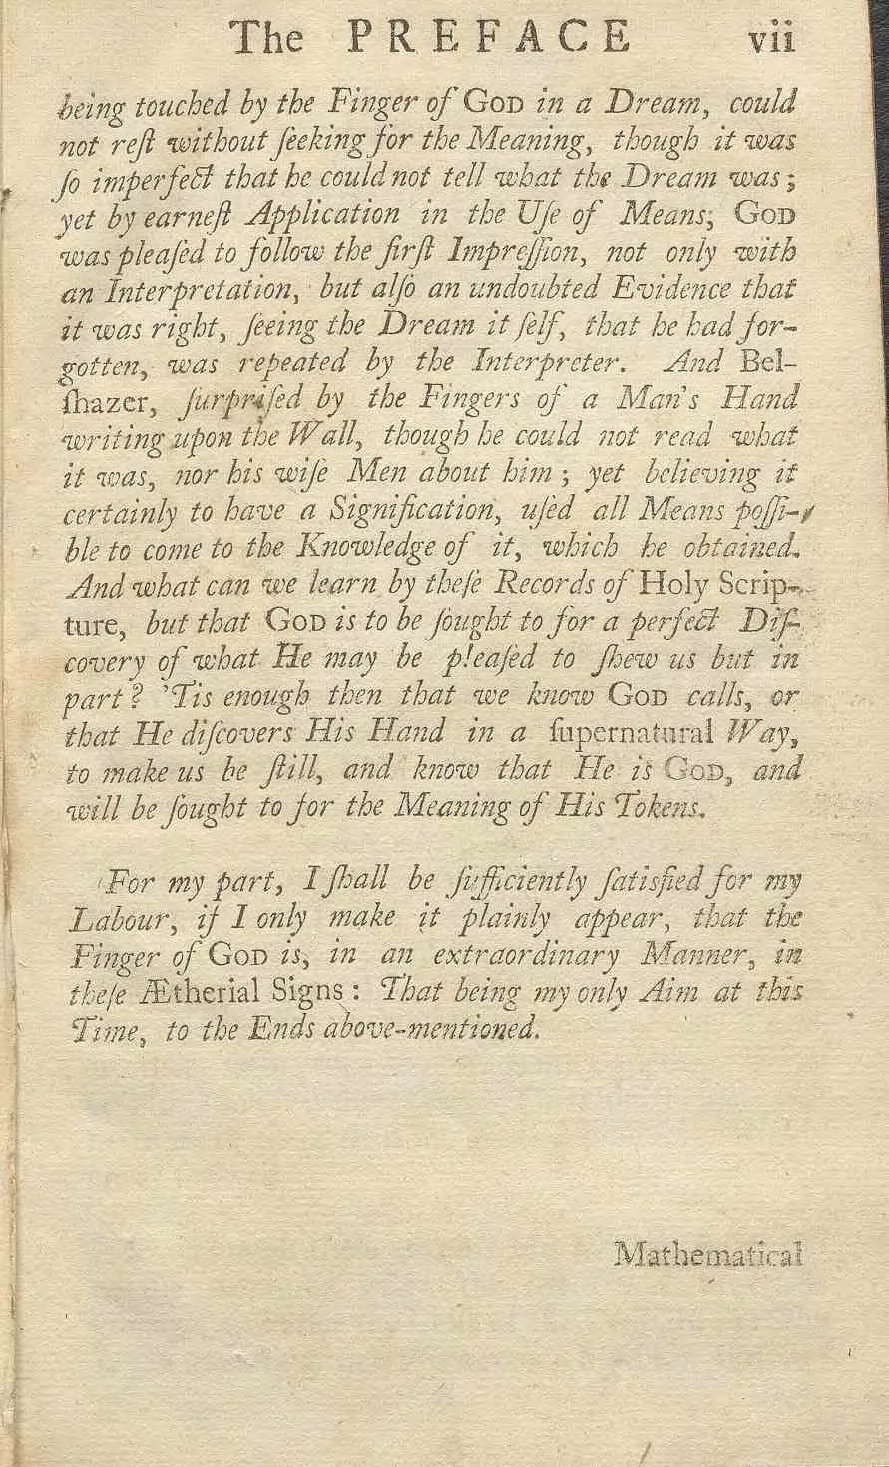 The PREFACE vii
being touched by the Finger of GOD in a Dream, could
not reſt without ſeeking for the Meaning, though it was
ſo imperfect that he could not tell what the Dream was;
yet by earneſt Application in the Uſe of Means, GOD
was pleaſed to follow the firſt Impreſſion, not only with
an Interpretation, but alſo an undoubted Evidence that
it was right, ſeeing the Dream it ſelf, that he had for-
gotten, was repeated by the Interpreter. And Bel-
ſhazer, ſurpriſed by the Fingers of a Man's Hand
writing upon the Wall, though he could not read what
it was, nor his wiſe Men about him; yet believing it
certainly to have a Signification, uſed all Means poſſi-
ble to come to the Knowledge of it, which he obtained.
And what can we learn by theſe Records of Holy Scrip-
ture, but that GOD is to be ſought to for a perfect Diſ-
covery of what He may be pleaſed to ſhew us but in
part? 'Tis enough then that we know GOD calls, or
that He diſcovers His Hand in a ſupernatural Way,
to make us be ſtill, and know that He is GOD, and
will be ſought to for the Meaning of His Tokens.
For my part, I ſhall be ſufficiently ſatisfied for my
Labour, if I only make it plainly appear, that the
Finger of GOD is, in an extraordinary Manner, in
theſe Ætherial Signs: That being my only Aim at this
Time, to the Ends above-mentioned.
Mathematical